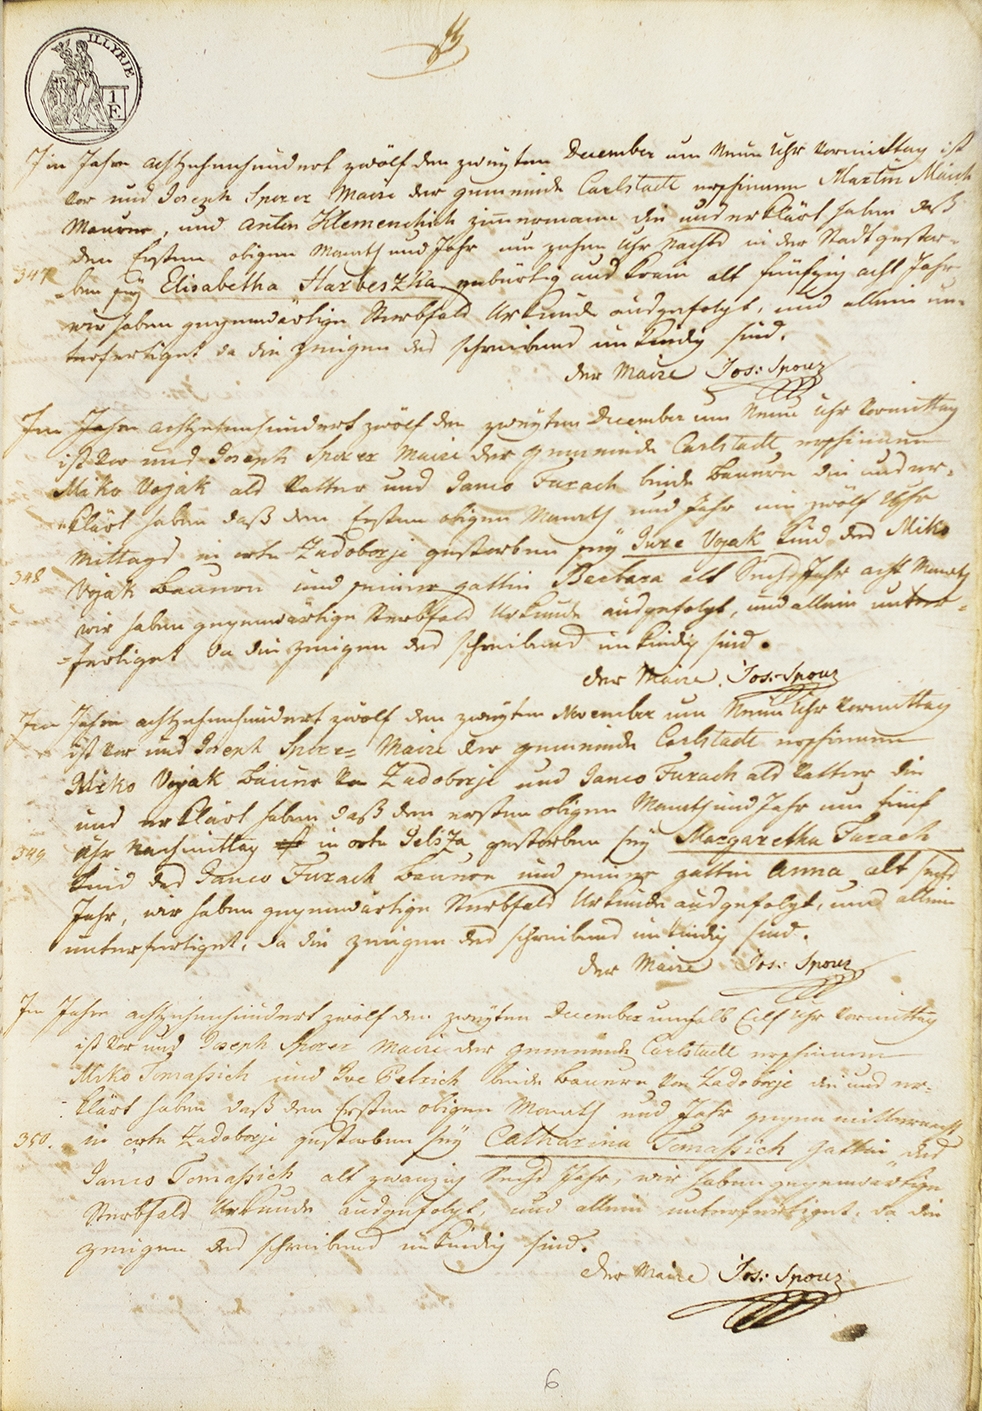 ILLYRIE
1 F.
Im Jahre achtzehenhundert zwölf den zweyten December um Neun Uhr Vormittag ist
vor uns Joseph Sporer Maire der gemeinde Carlstadt erschienen Martin
Maurer, und Anton Klemenchich zimmermann die uns erklärt haben daß
den Ersten obigen Monath und Jahr um zehen Uhr Nachts in der Stadt gestor-
347 -ben sey Elisabetha Harbeszka gebürtig aus Krain alt fünfzig acht Jahr
wir haben gegenwärtige Sterbfalls Urkunde ausgefolgt, und allein un-
terfertiget da die zeugen des schreibens unkundig sind.
der Maire Jos: Sporer
Im Jahre achtzehenhundert zwölf den zweyten December um Neun Uhr Vormittag
ist vor uns Joseph Sporer Maire der gemeinde Carlstadt erschienen
Miko Vojak als Vatter und Janco Furach beide Bauern die uns er-
klärt haben daß den Ersten obigen Monath und Jahr um zwölf Uhr
Mittags in orte Zadoborje gestorben sey Jure Vojak Kind des Miko
348 Vojak Bauern und seiner gattin Barbara alt Sechs Jahr acht Monath
wir haben gegenwärtige Sterbfalls Urkunde ausgefolgt, und allein unter-
-fertiget da die zeugen des schreibens unkundig sind.
der Maire Jos: Sporer
Im Jahre achtzehenhundert zwölf den zweyten November um Neun Uhr Vormittag
ist vor uns Joseph Sporer Maire der gemeinde Carlstadt erschienen
Miko Vojak Bauer von Zadoborje und Janco Furach als Vatter die
uns erklärt haben daß den ersten obigen Monath und Jahr um fünf
349 Uhr Nachmittag in orte Jelsza gestorben sey Margaretha Furach
Kind des Janco Furach Bauern und seiner gattin Anna alt sechs
Jahr, wir haben gegenwärtige Sterbfalls Urkunde ausgefolgt, und allein
unterfertiget, da die zeugen des schreibens unkundig sind.
der Maire Jos: Sporer
Im Jahre achtzehenhundert zwölf den zweyten December um halb Eilf Uhr Vormittag
ist vor uns Joseph Sporer Maire der gemeinde Carlstadt erschienen
Miko Tomassich und Ive Petrich beide Bauern von Zadoborje die uns er-
klärt haben daß den Ersten obigen Monath und Jahr gegen mitternacht
350. in orte Zadoborje gestorben sey Catharina Tomassich gattin des
Janco Tomassich alt zwanzig Sechs Jahr, wir haben gegenwärtige
Sterbfalls Urkunde ausgefolgt, und allein unterfertiget, da die
zeugen des schreibens unkundig sind.
der Maire Jos: Sporer
6